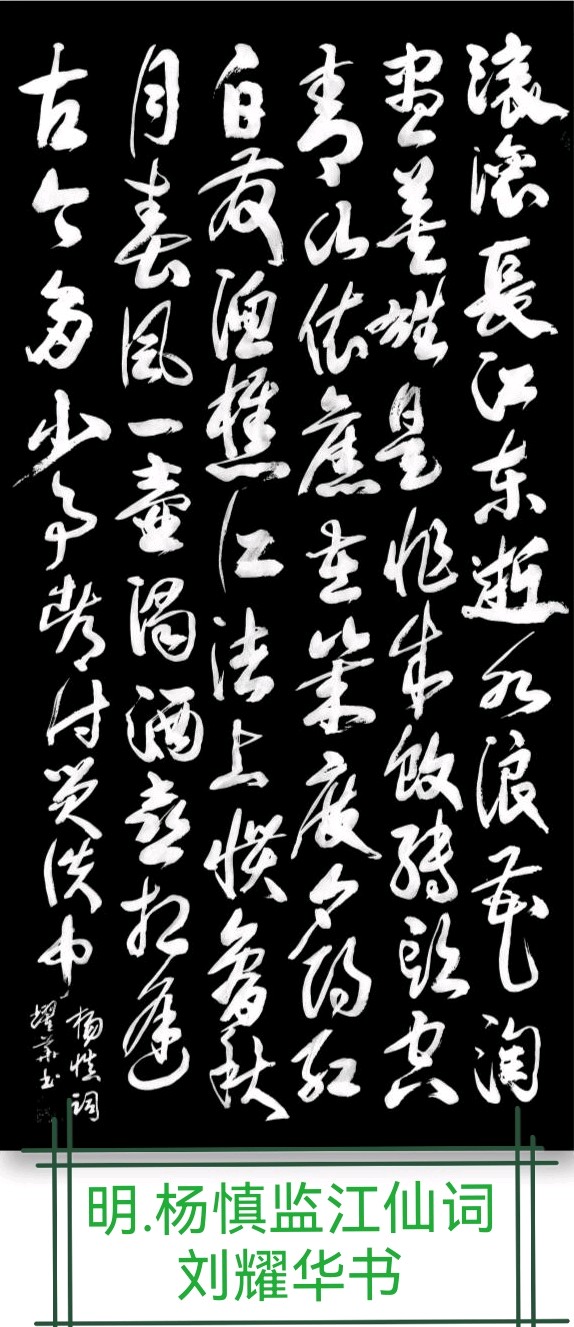 滚滚長江东逝水浪花淘
盡英雄是非成敗轉頭空
青山依舊在幾度夕陽紅
白发漁樵江渚上惯看秋
月春風一壶濁酒喜相逢
古今多少事都付笑谈中
杨慎词
耀华书
明.杨慎监江仙词
刘耀华书